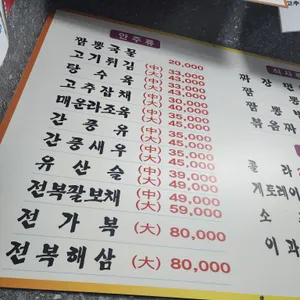 안주류
짬뽕국물 20,000
고기튀김 (中) 33,000
(大) 43,000
탕수육 (中) 33,000
(大) 43,000
고추잡채 (中) 30,000
매운라조육 (大) 40,000
간풍육 (中) 35,000
(大) 45,000
간풍새우 (中) 35,000
(大) 45,000
유산슬 (中) 39,000
(大) 49,000
전복팔보채 (中) 49,000
(大) 59,000
전가복 (大) 80,000
전복해삼 (大) 80,000
식사
짜장면
짬뽕
짬뽕밥
볶음짜
콜라
게토레이
소
이과